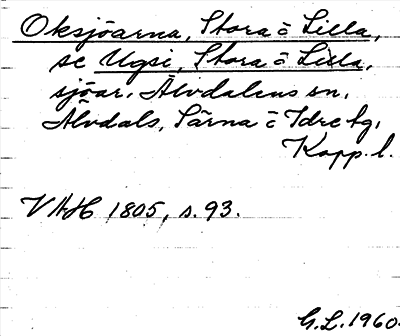 Oksjöarna, Stora o Lilla,
se Ugsi, Stora o Lilla,
sjöar. Älvdalens sn,
Älvdals, Särna o Idre tg,
Kopp. l.
VAH 1805, s. 93.
G.L. 1960.